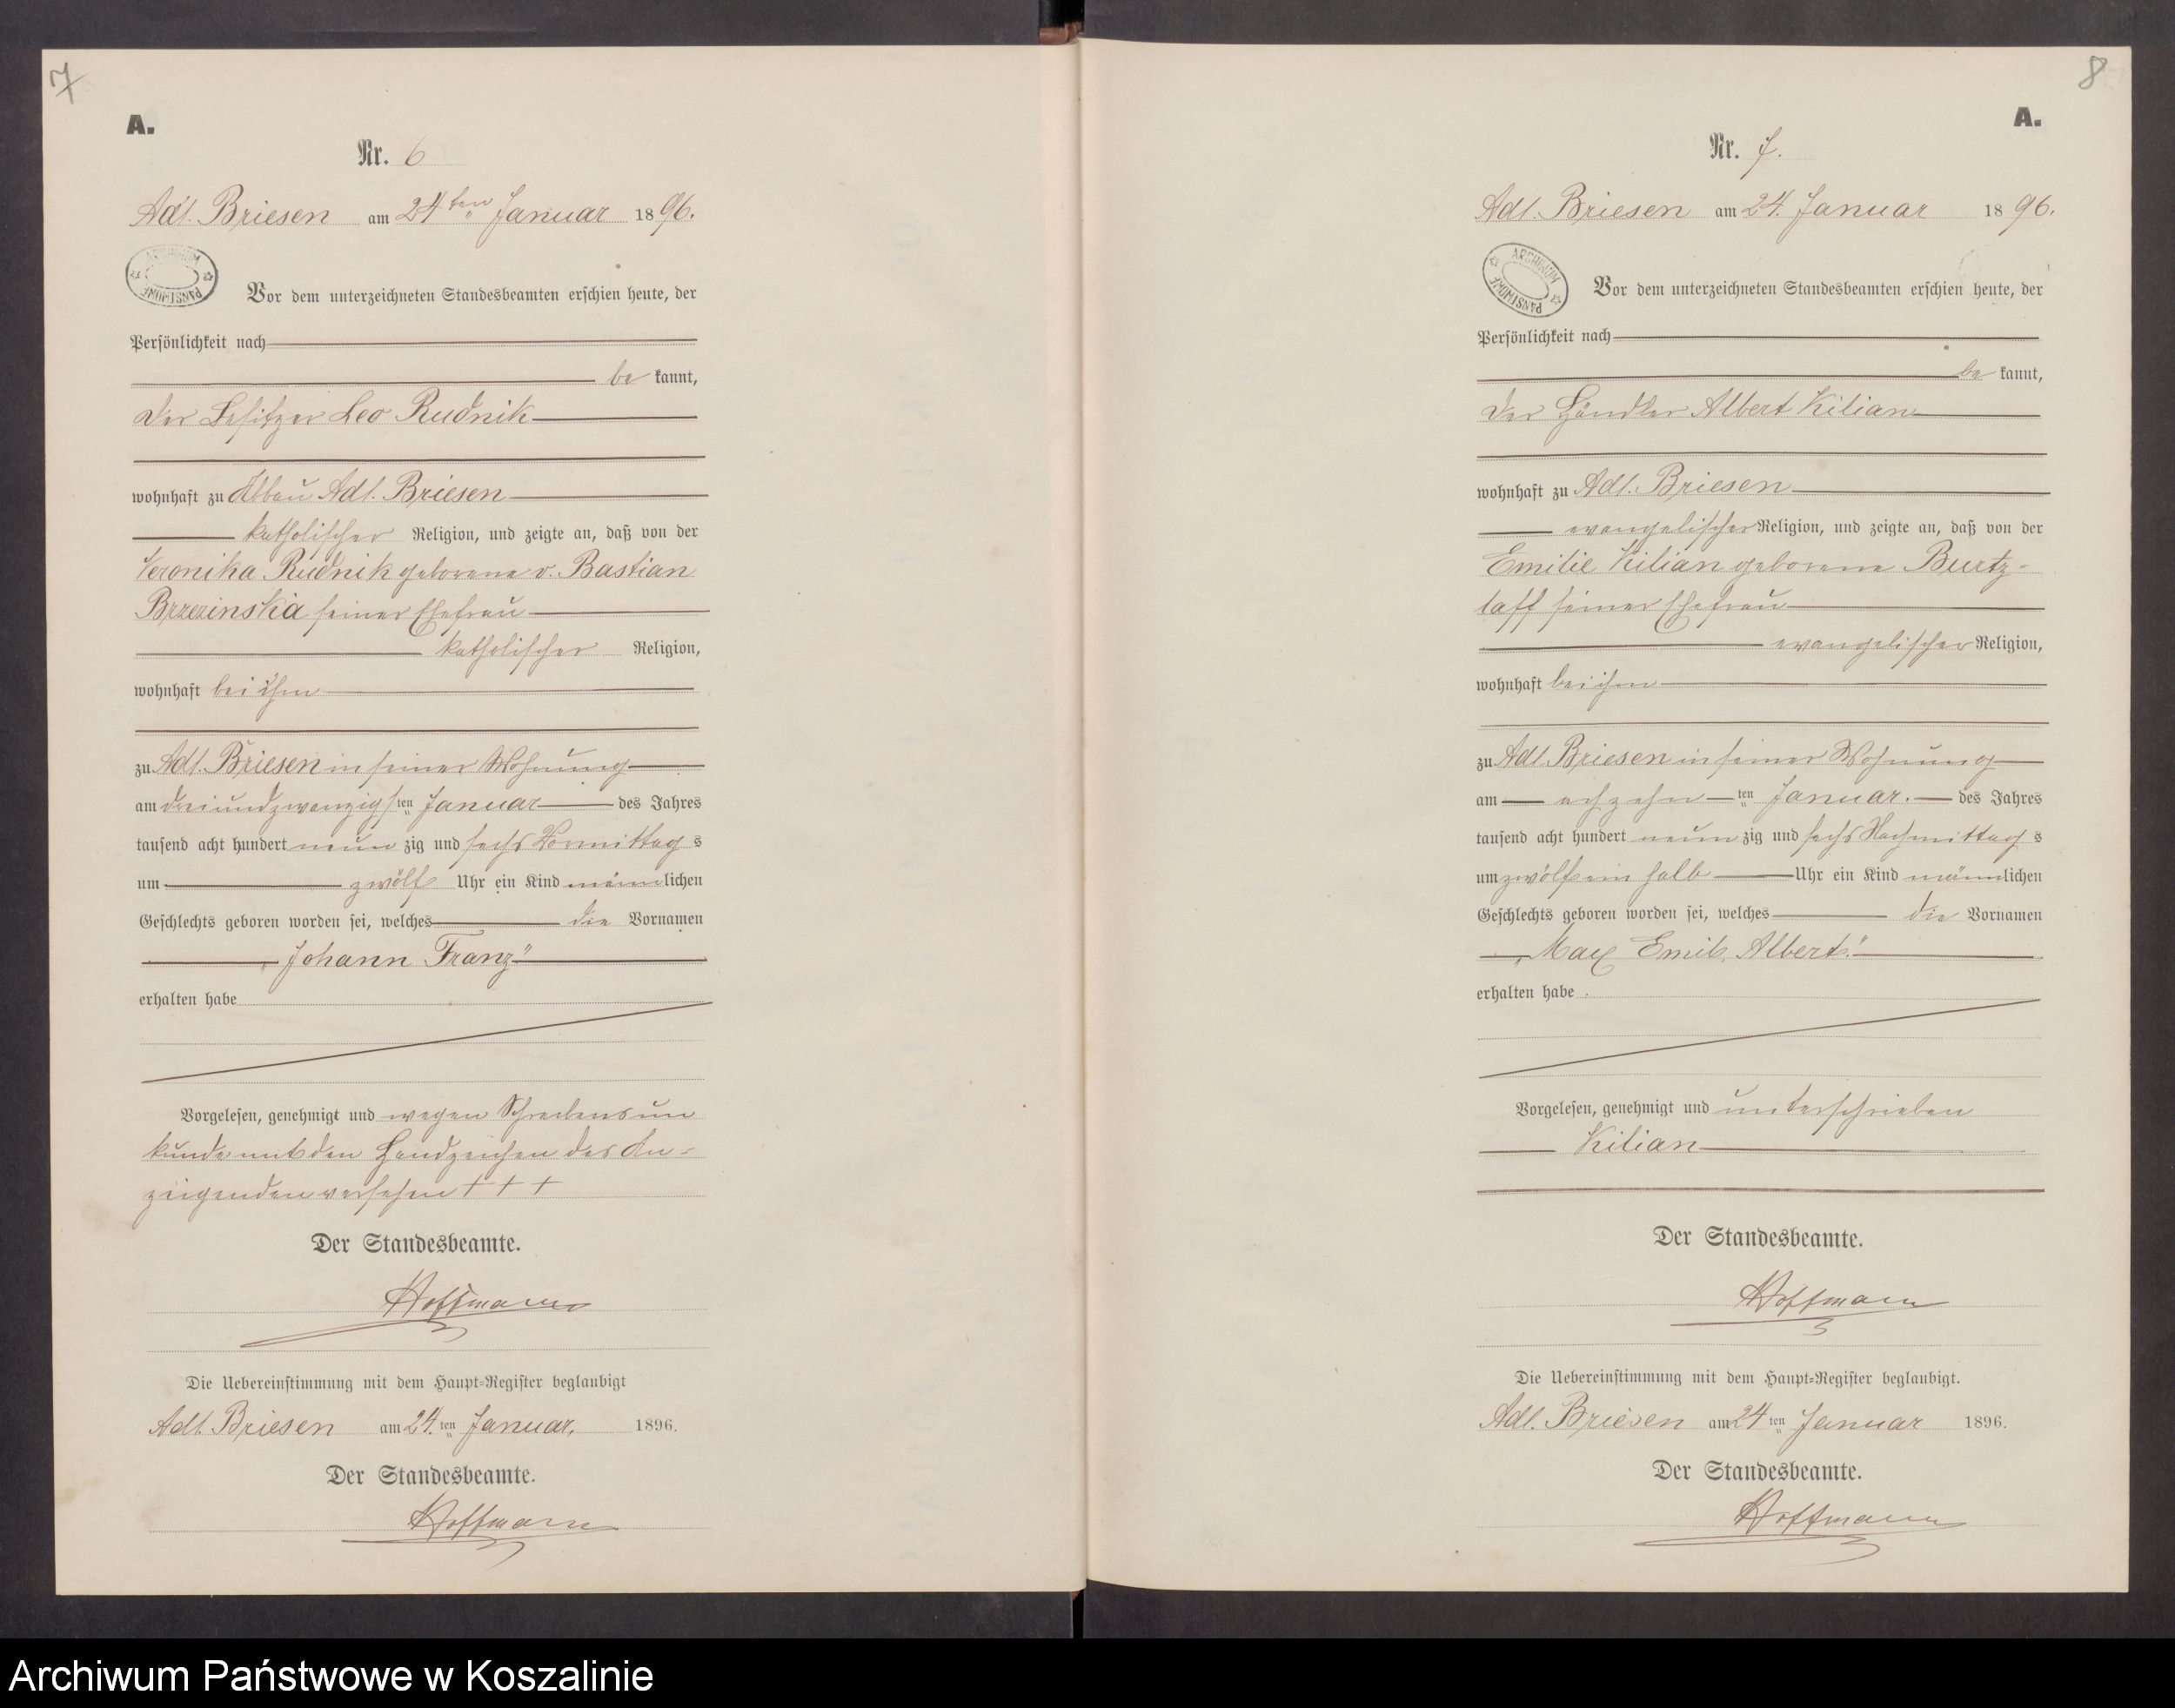 7
A.
Nr. 6
Adl. Briesen am 24ten Januar 1896.
ARCHIWUM PAŃSTWOWE
Vor dem unterzeichneten Standesbeamten erschien heute, der
Persönlichkeit nach
be kannt,
der Besitzer Leo Rudnik
wohnhaft zu Abbau Adl. Briesen
katholischer Religion, und zeigte an, daß von der
Veronika Rudnik geborene v. Bastian
Brzezinska seiner Ehefrau
katholischer Religion,
wohnhaft bei ihm
zu Adl. Briesen in seiner Wohnung
am dreiundzwanzigsten Januar des Jahres
tausend acht hundert neun zig und sechs Vormittag s
um zwölf Uhr ein Kind männlichen
Geschlechts geboren worden sei, welches die Vornamen
„Johann Franz"
erhalten habe
Vorgelesen, genehmigt und wegen Schreibensun
kunde mit den Handzeichen des An-
zeigenden versehen + + +
Der Standesbeamte.
Hoffmann
Die Uebereinstimmung mit dem Haupt-Register beglaubigt
Adl. Briesen am 24.ten Januar. 1896.
Der Standesbeamte.
Hoffmann
8
A.
Nr. 7.
Adl. Briesen am 24. Januar 1896.
ARCHIWUM PAŃSTWOWE
Vor dem unterzeichneten Standesbeamten erschien heute, der
Persönlichkeit nach
be kannt,
der Händler Albert Kilian
wohnhaft zu Adl. Briesen
evangelischer Religion, und zeigte an, daß von der
Emilie Kilian geborene Burtz-
laff seiner Ehefrau
evangelischer Religion,
wohnhaft bei ihm
zu Adl. Briesen in seiner Wohnung
am achzehn ten Januar. des Jahres
tausend acht hundert neun zig und sechs Nachmittag s
um zwölf ein halb Uhr ein Kind männlichen
Geschlechts geboren worden sei, welches die Vornamen
„Max Emil Albert."
erhalten habe
Vorgelesen, genehmigt und unterschrieben
Kilian
Der Standesbeamte.
Hoffmann
Die Uebereinstimmung mit dem Haupt-Register beglaubigt.
Adl. Briesen am 24 ten Januar 1896.
Der Standesbeamte.
Hoffmann
Archiwum Państwowe w Koszalinie